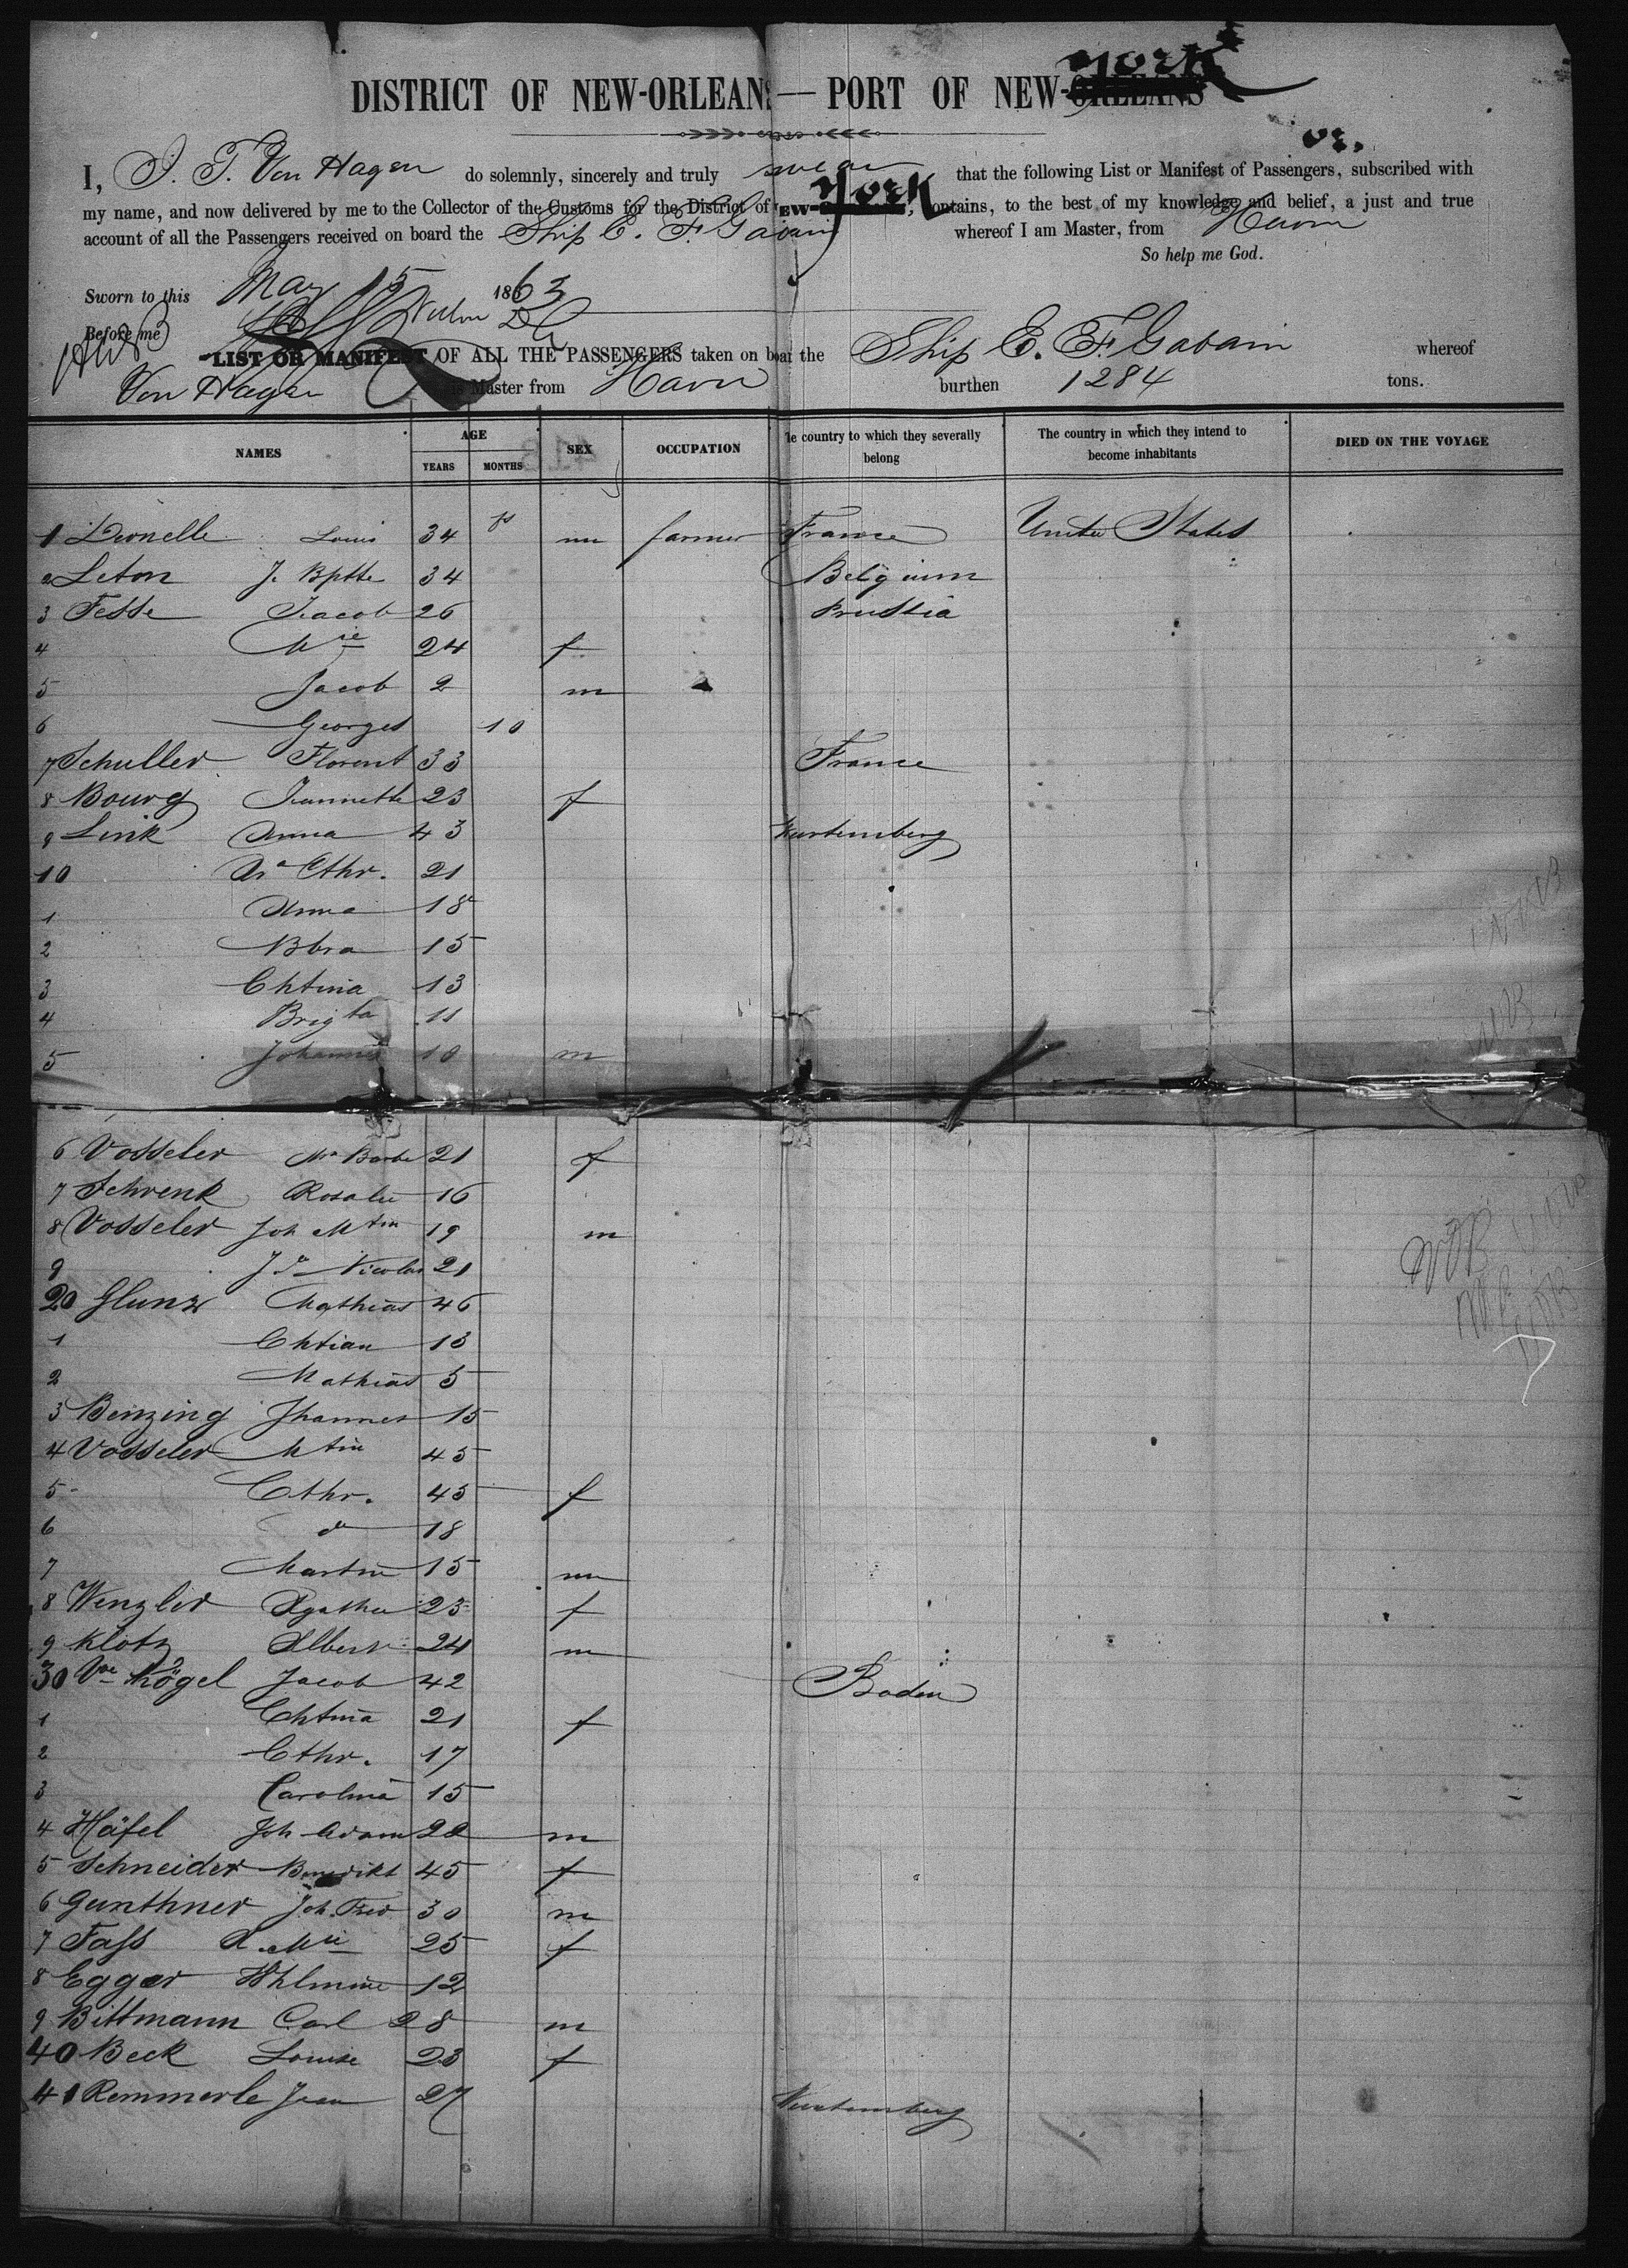 DISTRICT OF NEW-ORLEANS — PORT OF NEW-ORLEANS York
I, J. F. Von Hagen do solemnly, sincerely and truly swear that the following List or Manifest of Passengers, subscribed with
my name, and now delivered by me to the Collector of the Customs for the District of EW-York, contains, to the best of my knowledge and belief, a just and true
account of all the Passengers received on board the Ship E. F. Gabain whereof I am Master, from Havre
So help me God.
Sworn to this May 15 1863
Before me
LIST OR MANIFEST OF ALL THE PASSENGERS taken on boar the Ship E. F. Gabain whereof
Von Hagen is Master from Havre burthen 1284 tons.
NAMES AGE YEARS MONTHS SEX OCCUPATION he country to which they severally belong The country in which they intend to become inhabitants DIED ON THE VOYAGE
1 Louis 34 m farmer France United States
2 Leton J. Bptte 34 Belgium
3 Fesse Jacob 26 Prussia
4 Mie 24 f
5 Jacob 2 m
6 Georges 10
7 Schuller Florent 33 France
8 Bourg Jeannette 23 f
9 Link Anna 43 Wurtemberg
10 Aa Cthr. 21
1 Anna 18
2 Bbra 15
3 Chtina 13
4 Brigta 11
5 Johannes 10 m
6 Vosseler Ma Barbe 21 f
7 Schrenk Rosalie 16
8 Vosseler Joh Mtin 19 m
9 Nicolas 21
20 Glunz Mathias 46
1 Chtian 13
2 Mathias 5
3 Benzing Jhannes 15
4 Vosseler Mtin 45
5 Cthr. 45 f
6 do 18
7 Martin 15 m
8 Wenzler Agatha 23 f
9 Klotz Albert 24 m
30 Vve Kögel Jacob 42 Baden
1 Chtina 21 f
2 Cthr. 17
3 Carolina 15
4 Häfel Joh Adam 22 m
5 Schneider Benedikt 45 f
6 Gunthner Joh. Fred 30 m
7 Fass A. Mie 25 f
8 Egger Whlmine 12
9 Bittmann Carl 28 m
40 Beck Louise 23 f
41 Remmerle Jean 27 Wurtemberg